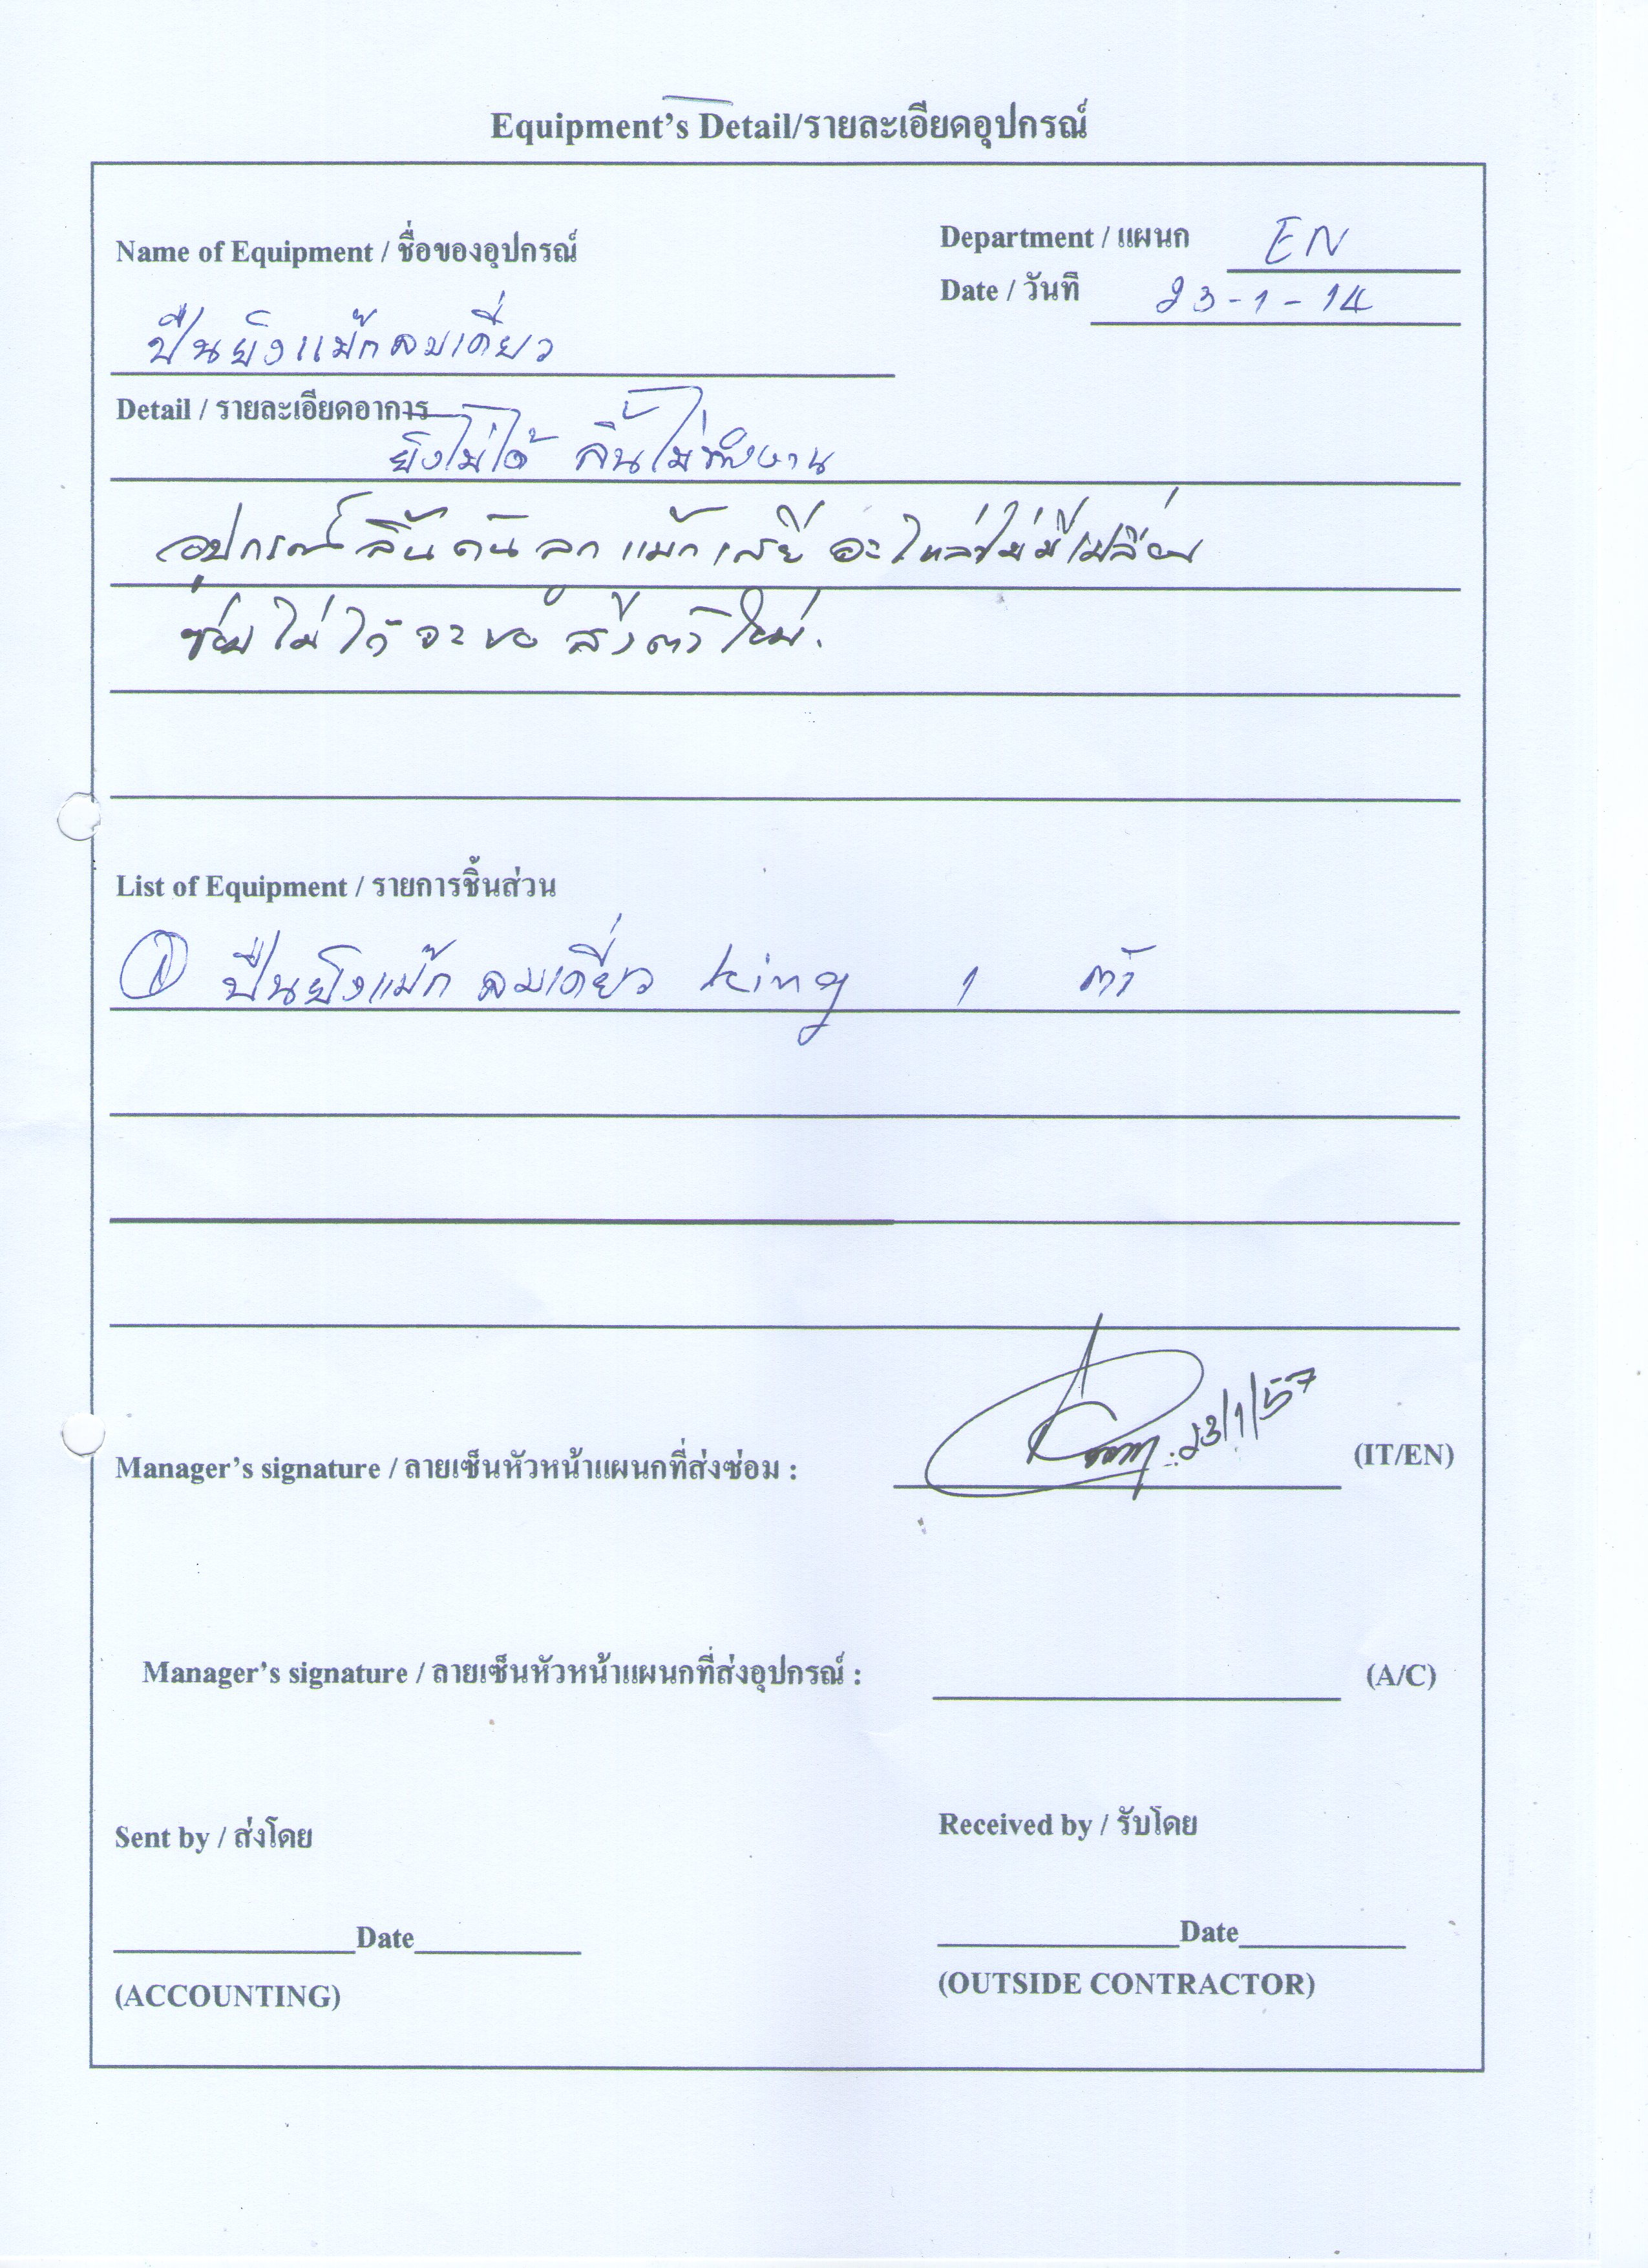 Equipment's Detail/รายละเอียดอุปกรณ์
Name of Equipment / ชื่อของอุปกรณ์
Department / แผนก EN
Date / วันที่ 23-1-14
ปืนยิงแม๊กลมเดี่ยว
Detail / รายละเอียดอาการ
ยิงไม่ได้ ลิ้นไม่ทำงาน
อุปกรณ์ลิ้นดันลูกแม๊กเสีย อะไหล่ไม่มีเปลี่ยน
ซ่อมไม่ได้ จะขอสั่งตัวใหม่.
List of Equipment / รายการชิ้นส่วน
① ปืนยิงแม๊กลมเดี่ยว king 1 ตัว
Manager's signature / ลายเซ็นหัวหน้าแผนกที่ส่งซ่อม : 23/1/57 (IT/EN)
Manager's signature / ลายเซ็นหัวหน้าแผนกที่ส่งอุปกรณ์ : (A/C)
Sent by / ส่งโดย
Received by / รับโดย
Date
Date
(ACCOUNTING)
(OUTSIDE CONTRACTOR)